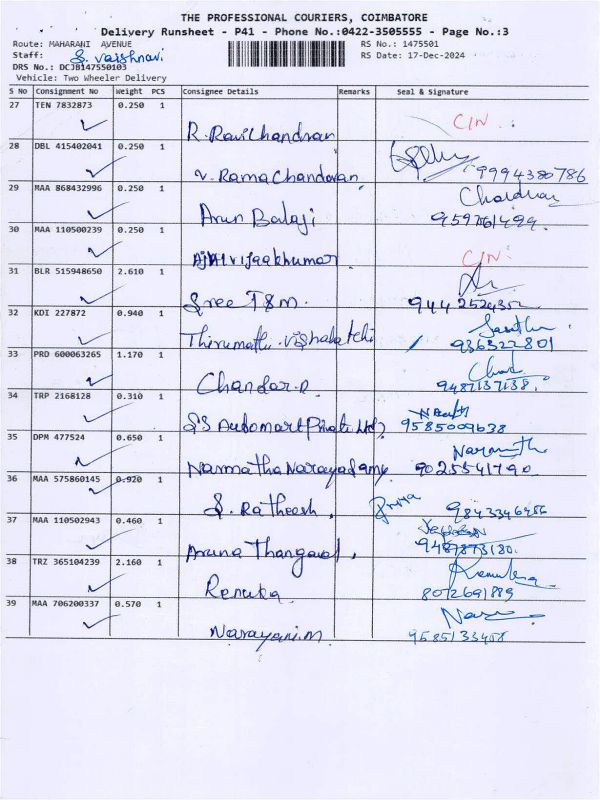 THE PROFESSIONAL COURIERS, COIMBATORE
Delivery Runsheet - P41 - Phone No.:0422-3505555 - Page No.:3
Route: MAHARANI AVENUE RS No.: 1475501
Staff: S. Vaishnavi RS Date: 17-Dec-2024
DRS No.: DCJB147550103
Vehicle: Two Wheeler Delivery
S No Consignment No Weight PCS Consignee Details Remarks Seal & Signature
27 TEN 7832873 0.250 1
R. Ravichandran C/N
28 DBL 415402041 0.250 1
V. Rama Chandaran 9994380786
29 MAA 868432996 0.250 1
Arun Balaji
30 MAA 110500239 0.250 1
C/N
31 BLR 515948650 2.610 1
Sree TSM.
32 KDI 227872 0.940 1
33 PRD 600063265 1.170 1
Chandar.R 9487137138.
34 TRP 2168128 0.310 1
SS Automart Private Ltd 9585009638
35 DPM 477524 0.650 1
Narmatha Narayasamy 9025541790
36 MAA 575860145 0.920 1
S. Ratheesh. 9843346456
37 MAA 110502943 0.460 1
Aruna Thangavel. 9487873180.
38 TRZ 365104239 2.160 1
Renuka 8072691889
39 MAA 706200337 0.570 1
Narayani.M 9585133458